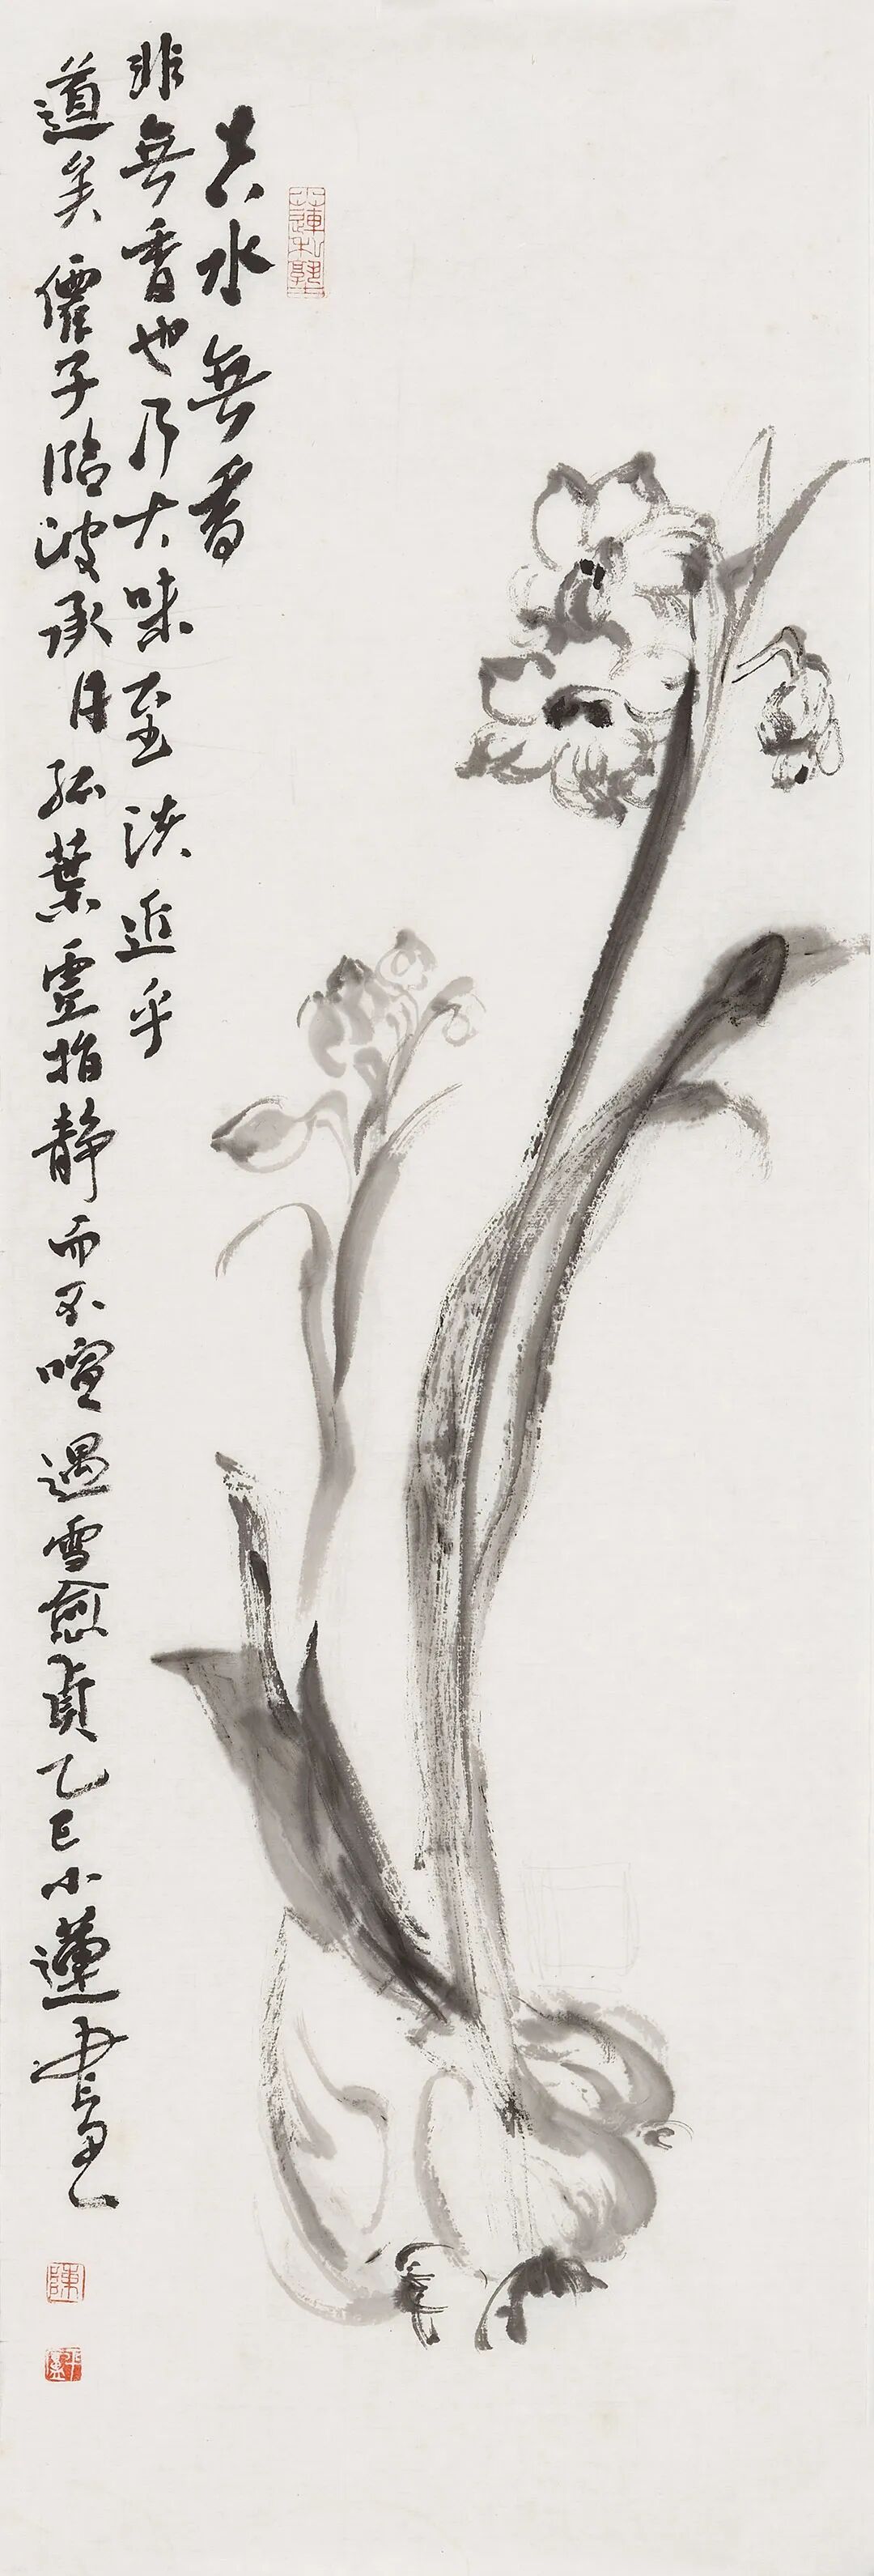 小蓮私塾
真水無香
非無香也乃大味至淡近乎
道矣僊子臨波承月孤葉靈指静而不喧遇雪愈貞乙巳小蓮畫
陳